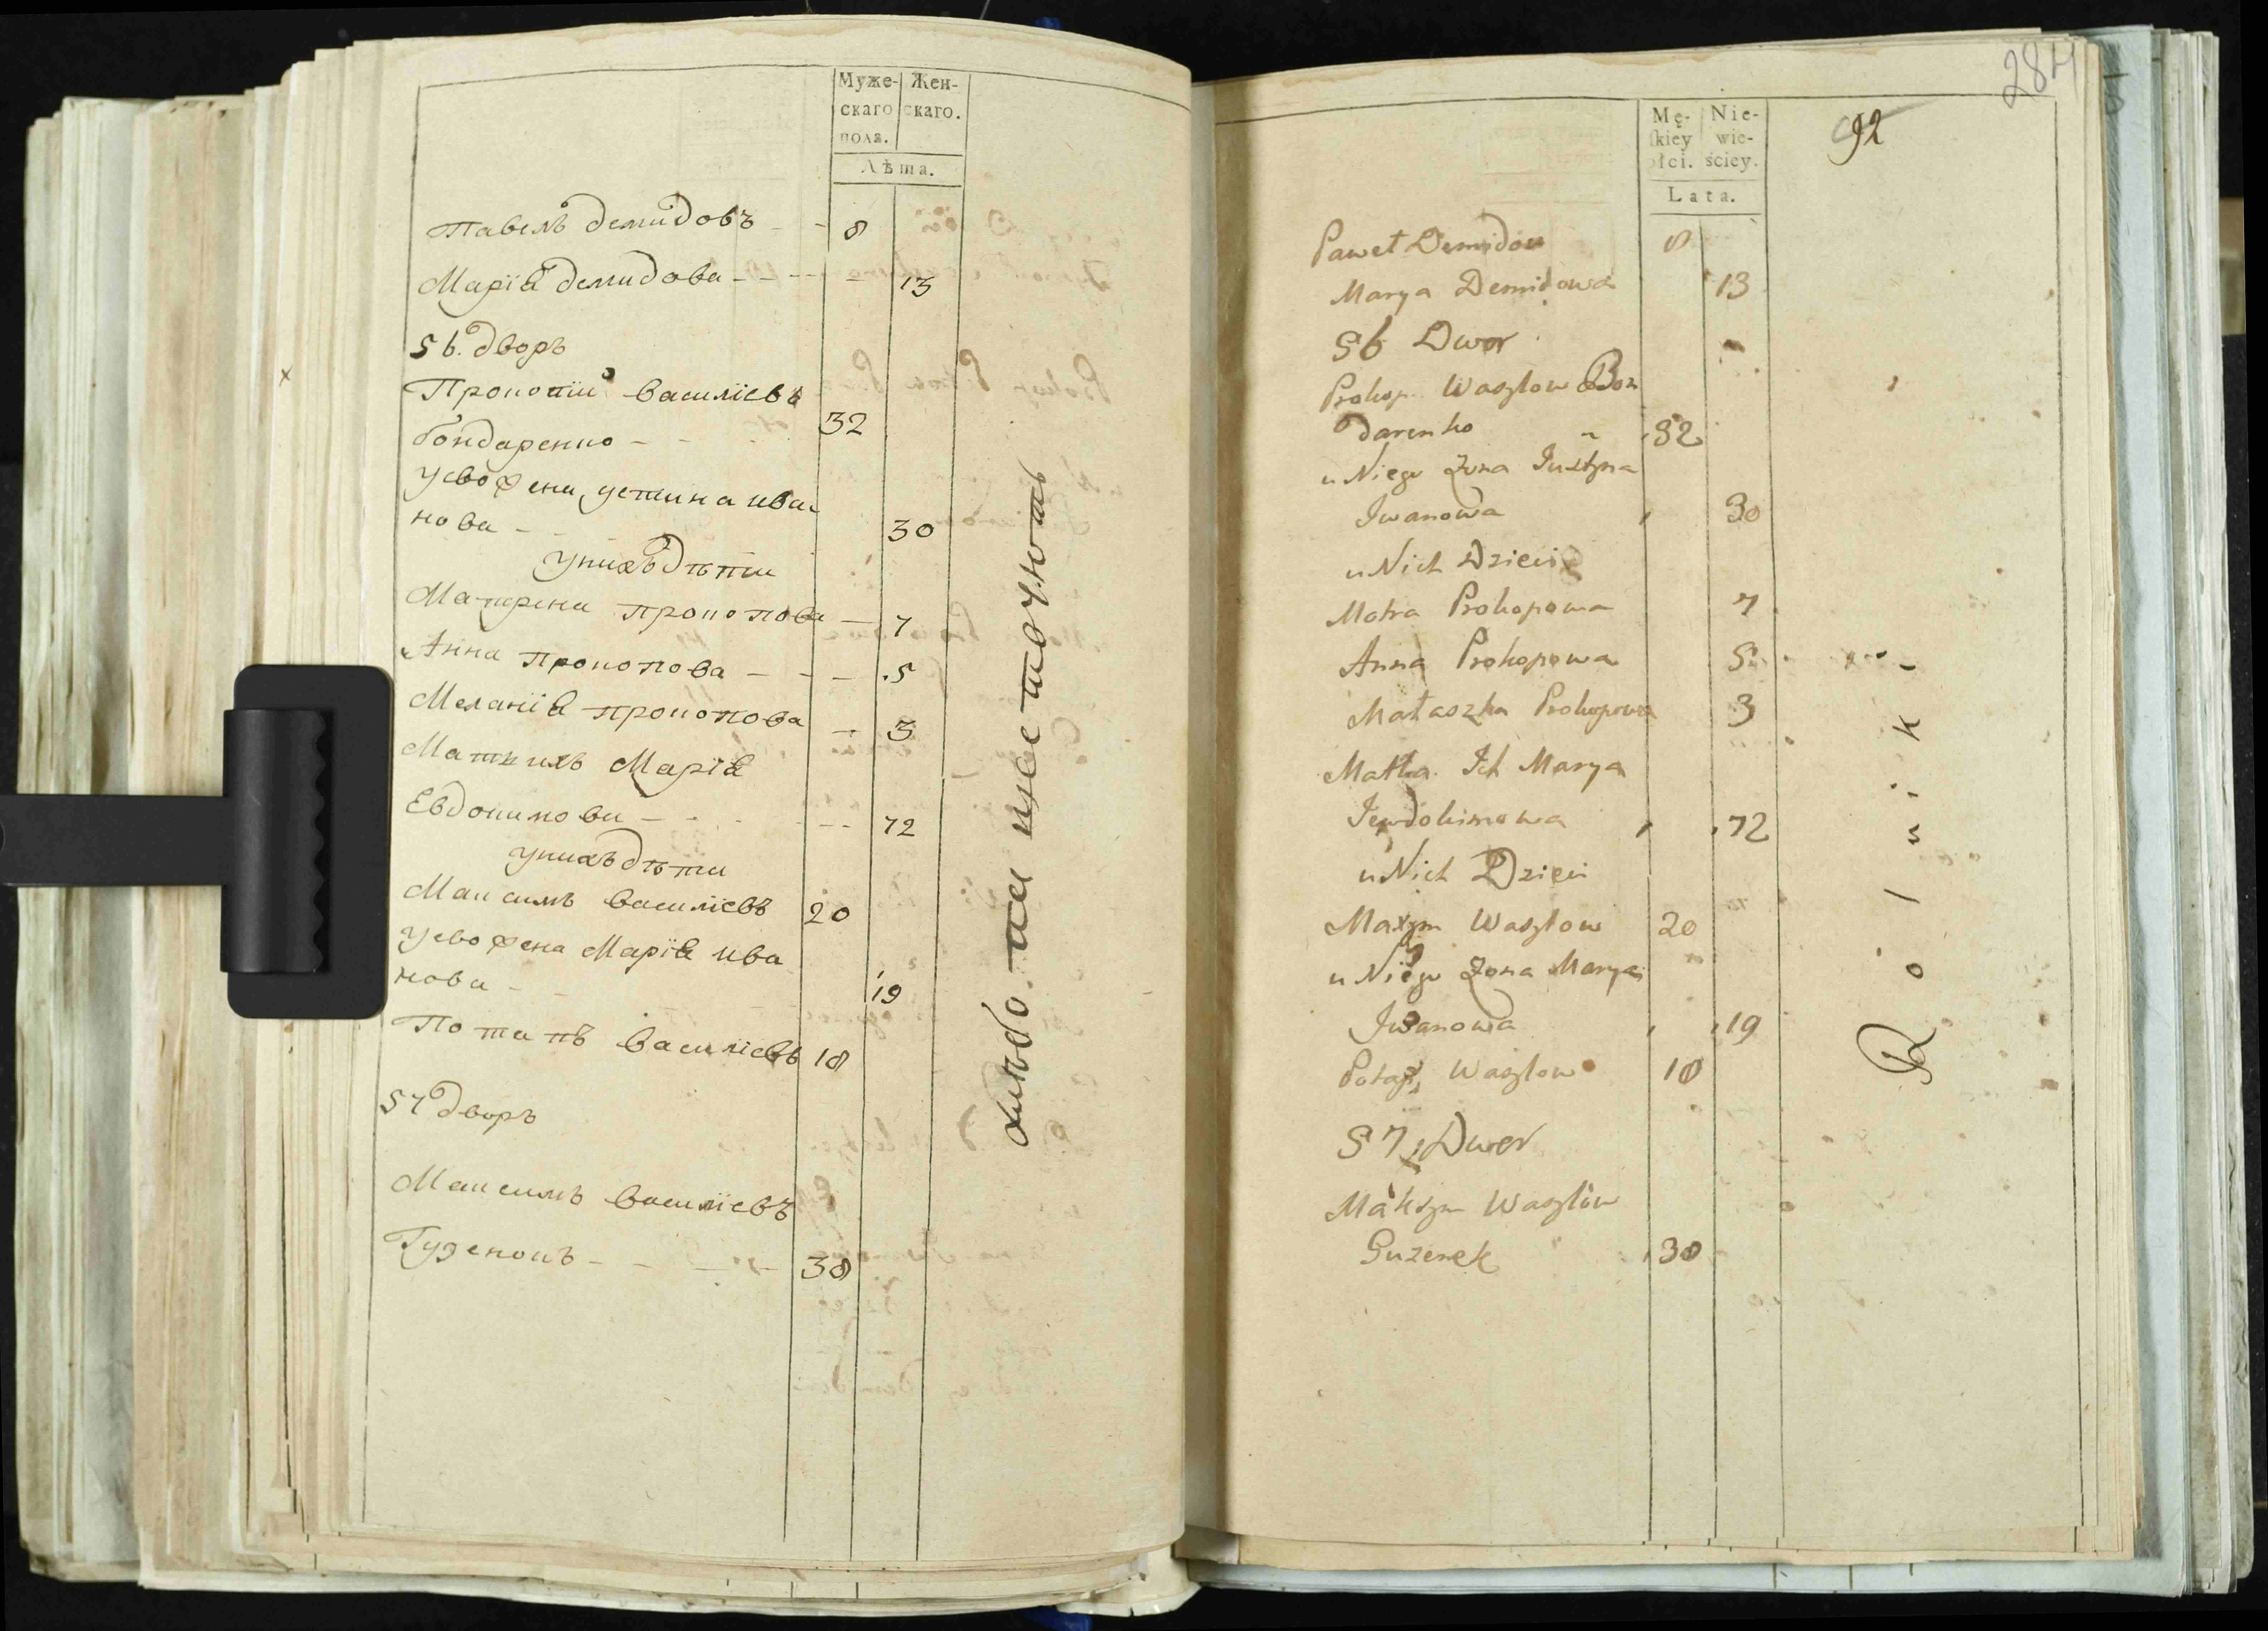 Муже-
скаго
пола.
Жен-
скаго.
Лѣта.
Павелъ Демидовъ - - 8
Марія Демидова - - - - 13
56. дворъ
Прокопій Василіевъ
бондаренко - - 32
У его жена устина ива
нова - 30
У нихъ дѣти
Матрена Прокопова - 7
Анна Прокопова - - - 5
Меланія Прокопова - 3
Мать ихъ Марія
Евдокимова - - - - 72
У нихъ дѣти
Максимъ Василіевъ 20
У его жена Марія ива
нова - - 19
Потапъ Василіевъ 18
57 дворъ
Максимъ Василіевъ
Гузенокъ - - - - 38
хлѣбо
284
92
Mę-
skiey
płci.
Nie-
wie-
ściey.
Lata.
Paweł Demidow 8
Marya Demidowa 13
56 Dwor
Prokop Wasylow Bon
darenko 32
u Niego Zona Justyna
Iwanowa 30
u Nich Dzieci
Motra Prokopowa 7
Anna Prokopowa 5
Małaszka Prokopowa 3
Matka Ich Marya
Jewdokimowa 72
u Nich Dzieci
Maxym Wasylow 20
u Niego Zona Marya
Iwanowa 19
Potap Wasylow 18
57 Dwor
Maksym Wasylow
Guzenek 38
Rolniki